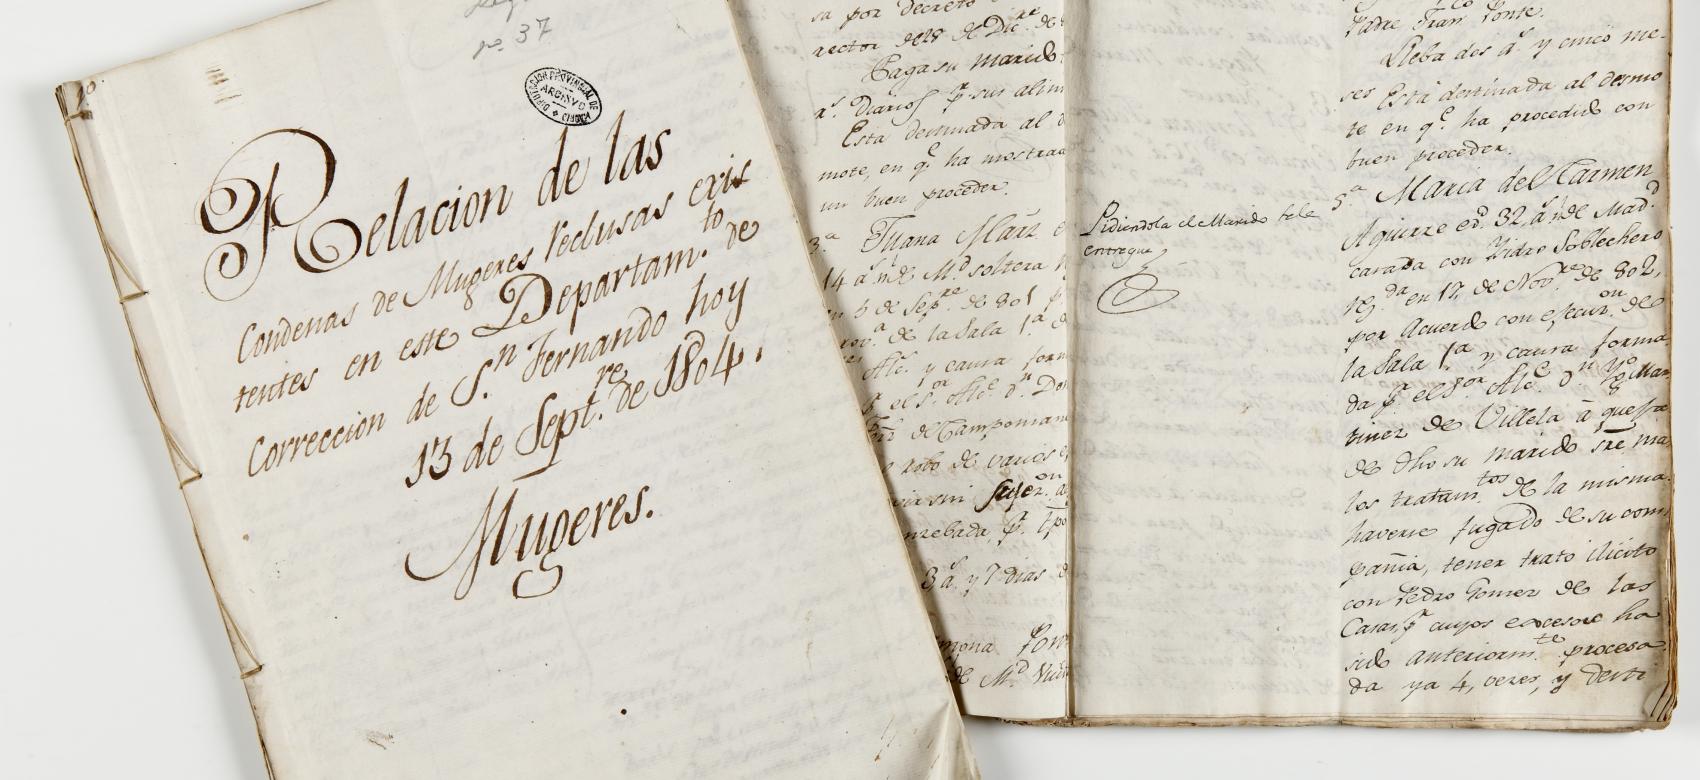 nº. 37
DIPUTACION PROVINCIAL DE MADRID
ARCHIVO
Relacion de las
Condenas de Mugeres reclusas exis
tentes en este Departam.to de
Correccion de S.n Fernando hoy
13 de Sept.re de 1804.
Mugeres.
sa por decreto
rector de 28 de Dic.re de
Paga su marido
a.s diarios p.a sus alim
Esta destinada al d
mote, en q.e ha mostrad
un buen proceder.
3.a
14 a.s n.l de M.d soltera
en 5 de Sep.re de 801 p
de la Sala 1.a d
Alc. y causa form
p.r el S.or Alc.e d.n
de Campoman
robo de varios
3 a.s y 7 dias d
de M.d
Pidiendola el Marido se le
entregue
Padre Fran.co Ponse.
Lleba dos a.s y cinco me-
ses Está destinada al desmo
te en q.e ha procedido con
buen proceder.
5.a Maria del Carmen
Aguirre ed.d 32 a.s n.l de Mad.d
casada con Ysidro Soblechero
rez.da en 17, de Nov.re de 802,
por Acuerdo con ejecuc.on de
la Sala 1.a y causa forma-
da p.r el S.or Alc.e d.n Yg.o Mar-
tinez de Villela á quexa
de dho su marido sre ma
los tratam.tos de la misma
haverse fugado de su com
pañia, tener trato ilicito
con Pedro Gomez de las
Casas, p.r cuyos excesos ha
sido anteriorm.te procesa
da ya 4, veces, y desti